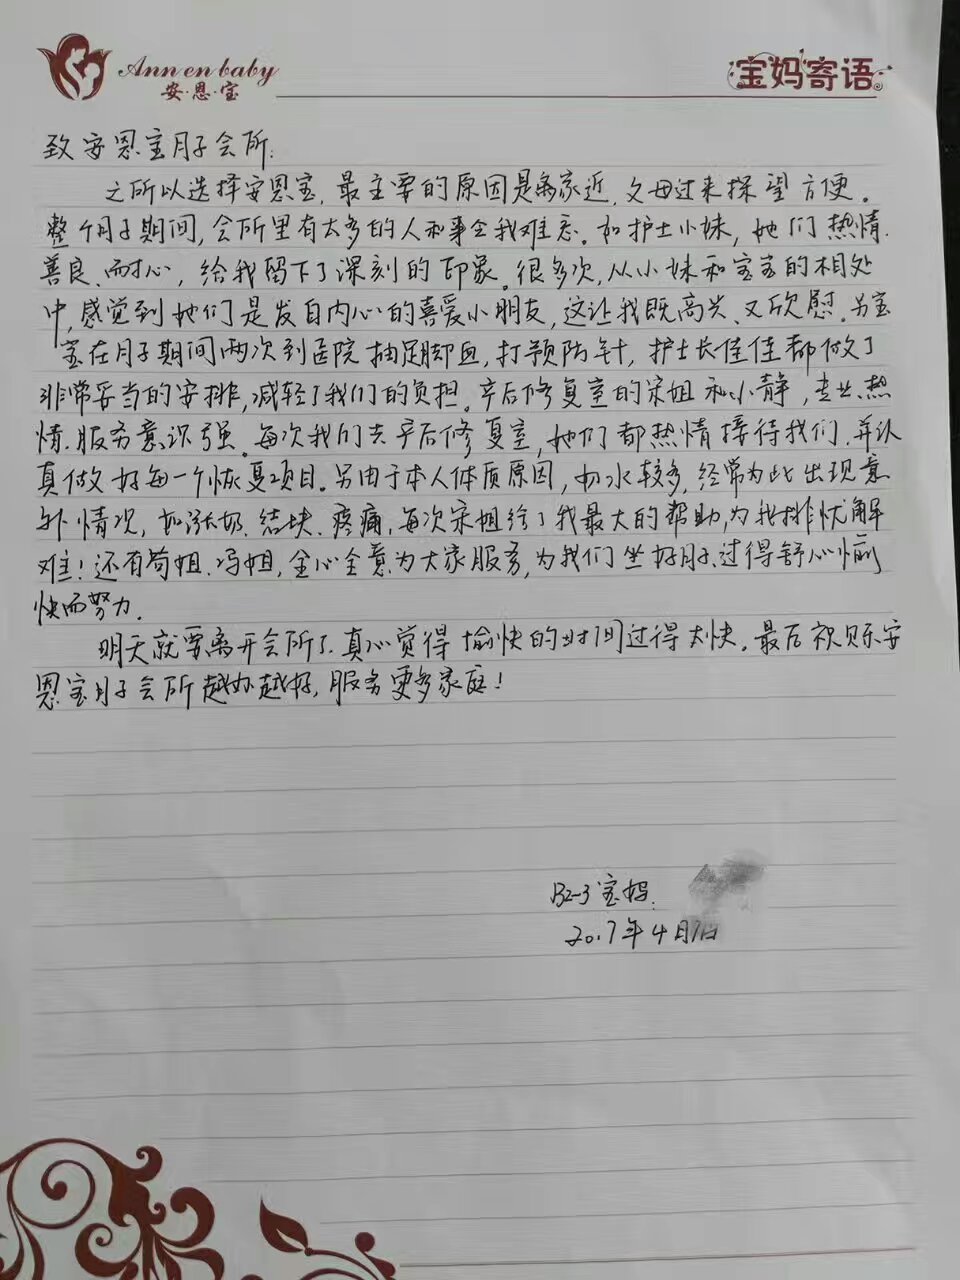 Ann en baby
安·恩·宝
宝妈寄语
致安恩宝月子会所:
之所以选择安恩宝,最主要的原因是离家近,父母过来探望方便。
整个月子期间,会所里有太多的人和事令我难忘。如护士小妹,她们热情.
善良、耐心,给我留下了深刻的印象。很多次,从小妹和宝宝的相处
中,感觉到她们是发自内心的喜爱小朋友,这让我既高兴、又欣慰。另宝
宝在月子期间两次到医院抽足脚血,打预防针,护士长佳佳都做了
非常妥当的安排,减轻了我们的负担。产后修复室的宋姐和小静,专业、热
情.服务意识强。每次我们去产后修复室,她们都热情接待我们,并认
真做好每一个恢复项目。另由于本人体质原因,奶水较多,经常为此出现意
外情况,如涨奶、结块、疼痛,每次宋姐给了我最大的帮助,为我排忧解
难!还有苟姐、冯姐,全心全意为大家服务,为我们坐好月子、过得舒心愉
快而努力.
明天就要离开会所了,真心觉得愉快的时间过得太快。最后祝贝乐安
恩宝月子会所越办越好,服务更多家庭!
B2-3宝妈:
2017年4月